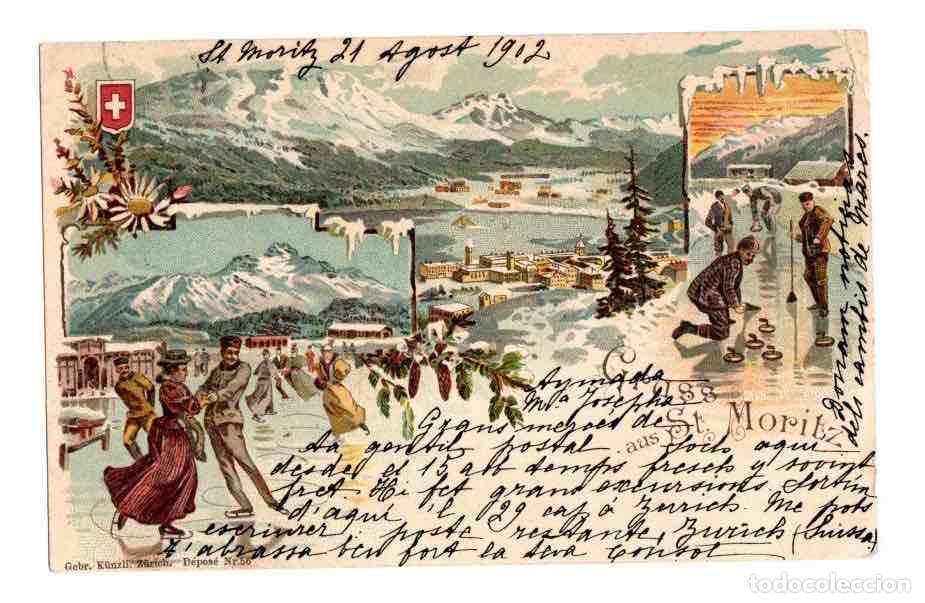 St Moritz 21 Agost 1902
Gruss
aus St. Moritz
Aymada
Mª Josepha
Grans mercés de
ta gentil postal Soch aqui
desde el 15 ab temps fresch y sovint
fret. Hi fet grans excursions. Sortim
d'aqui 'l 29 cap á Zurich. Me pots
escriurer poste restante, Zurich (Suissa)
T'abrassa ben fort la teva Consol
Donam noticias
dels
de Mares.
Gebr. Künzli. Zürich. Déposé Nr. 56
todocoleccion
todocoleccion.net